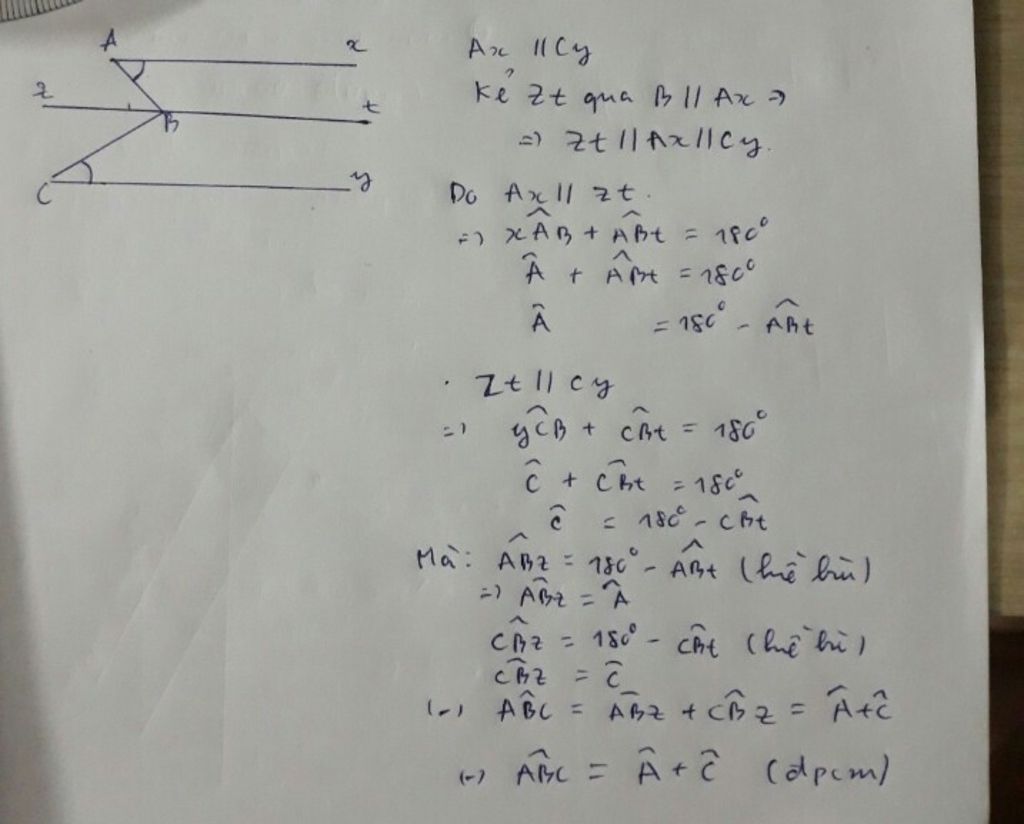 A
x
z
t
B
C
y
Ax // Cy
Kẻ zt qua B // Ax =>
=> zt // Ax // Cy.
Do Ax // zt.
=> xÂB + AB̂t = 180°
Â + AB̂t = 180°
Â = 180° - AB̂t
. zt // cy
=> yĈB + CB̂t = 180°
Ĉ + CB̂t = 180°
Ĉ = 180° - CB̂t
Mà: AB̂z = 180° - AB̂t (kề bù)
=> AB̂z = Â
CB̂z = 180° - CB̂t (kề bù)
CB̂z = Ĉ
(-) AB̂C = AB̂z + CB̂z = Â + Ĉ
(-) AB̂C = Â + Ĉ (dpcm)